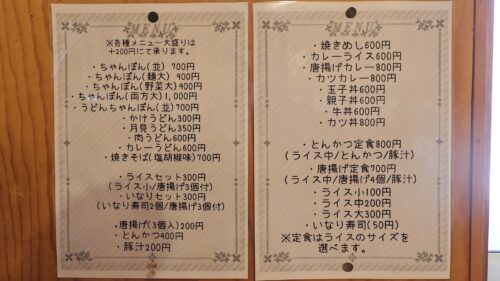 MENU
※各種メニュー大盛りは
+200円にて承ります。
・ちゃんぽん(並) 700円
・ちゃんぽん(麺大) 900円
・ちゃんぽん(野菜大)900円
・ちゃんぽん(両方大)1,000円
・うどんちゃんぽん(並)700円
・かけうどん300円
・月見うどん350円
・肉うどん600円
・カレーうどん600円
・焼きそば(塩胡椒味)700円
・ライスセット300円
(ライス小/唐揚げ3個付)
・いなりセット300円
(いなり寿司2個/唐揚げ3個付)
・唐揚げ(3個入)200円
・とんかつ400円
・豚汁200円
MENU
・焼きめし600円
・カレーライス600円
・唐揚げカレー800円
・カツカレー800円
・玉子丼600円
・親子丼600円
・牛丼600円
・カツ丼800円
・とんかつ定食800円
(ライス中/とんかつ/豚汁)
・唐揚げ定食700円
(ライス中/唐揚げ4個/豚汁)
・ライス小100円
・ライス中200円
・ライス大300円
・いなり寿司(50円)
※定食はライスのサイズを
選べます。